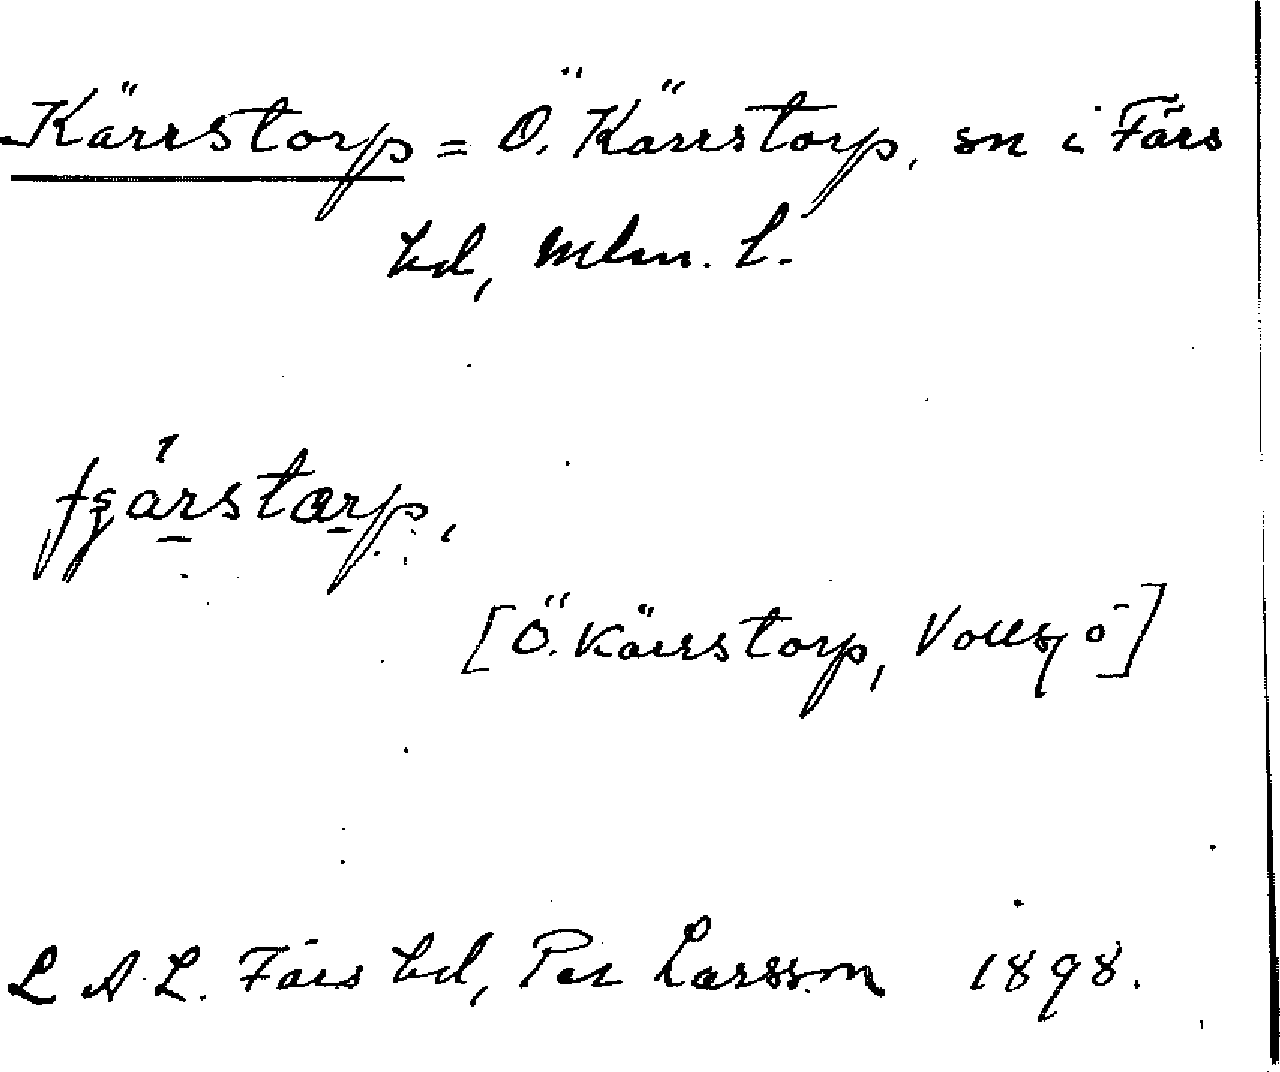 Kärrstorp = Ö. Kärrstorp, sn i Färs
hd, Mlm. l.
[Ö. Kärrstorp, Vollsjö]
L A L. Färs hd, Per Larsson 1898.